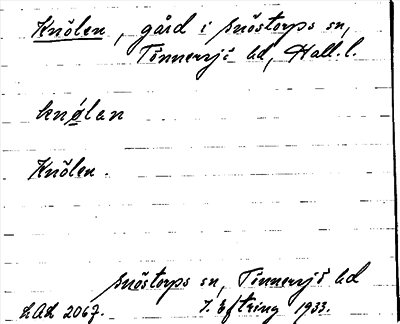 Knölen, gård i Snöstorps sn,
Tönnersjö hd, Hall. l.
knølan
Knölen.
Snöstorps sn, Tönnersjö hd
LAL 2067. J. Eftring 1933.